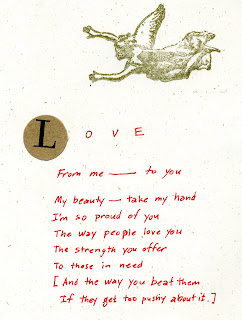 L O V E
From me — to you
My beauty — take my hand
I'm so proud of you
The way people love you
The strength you offer
To those in need
[And the way you beat them
If they get too pushy about it.]